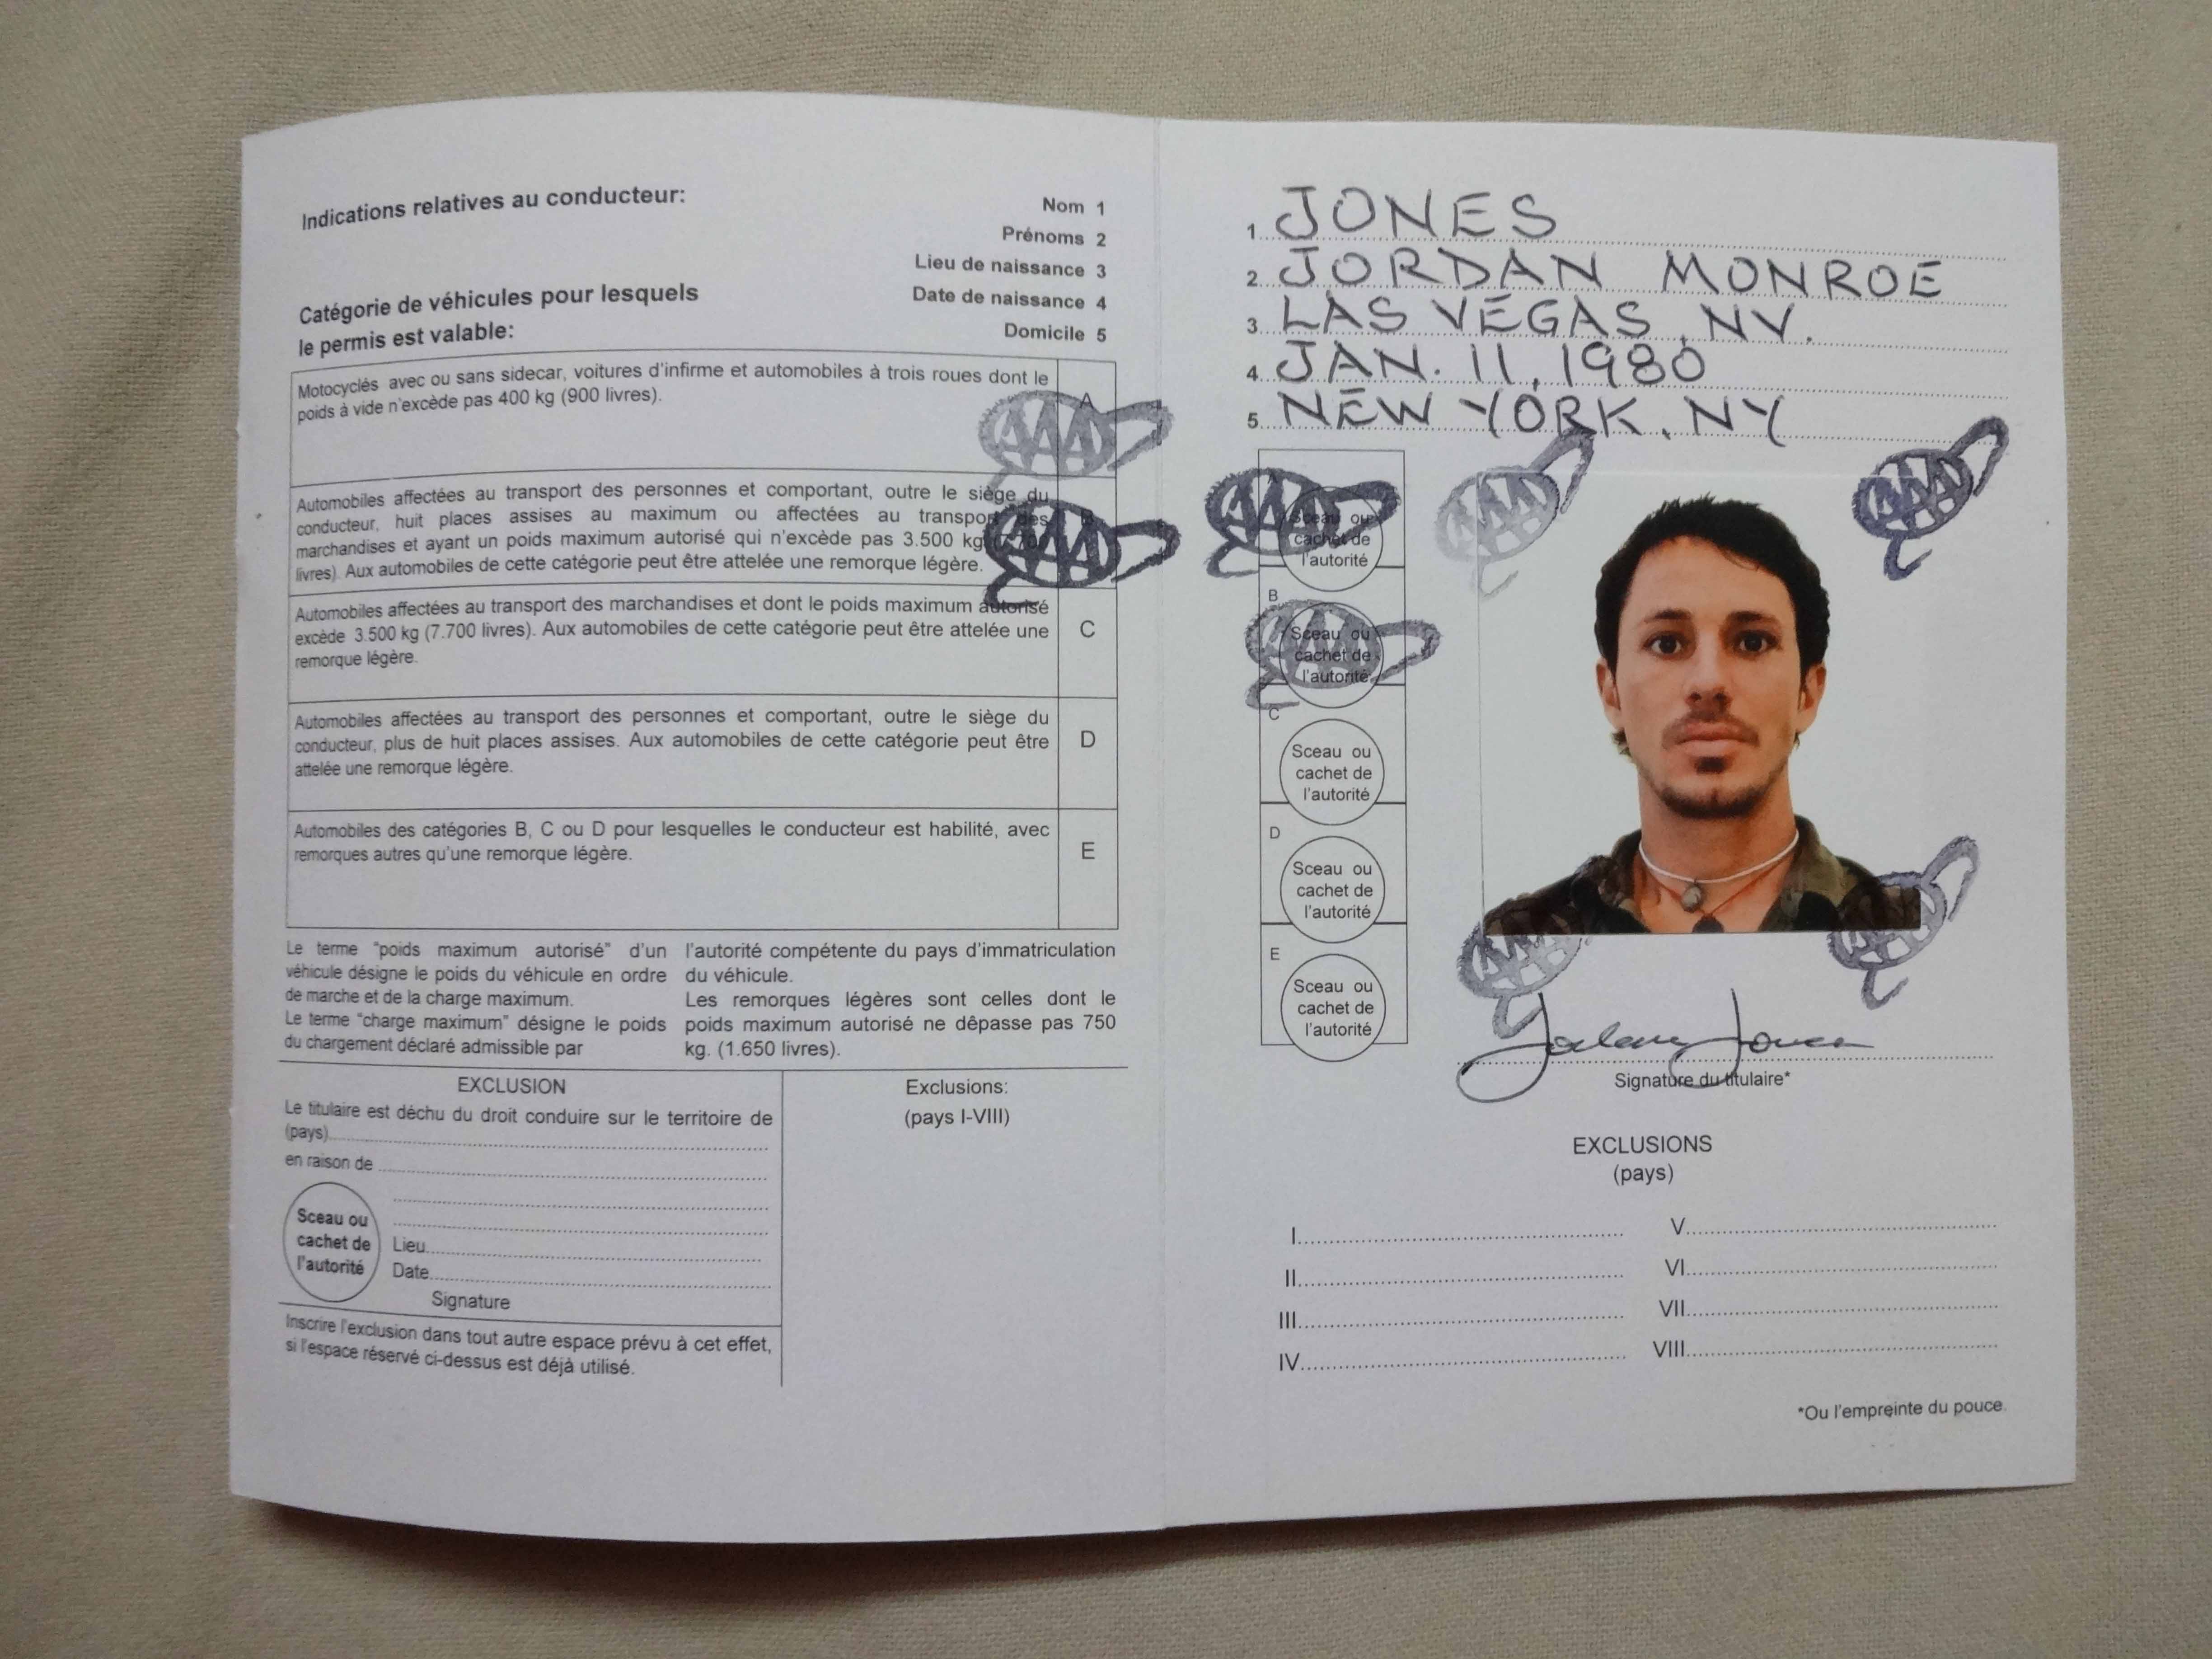 Indications relatives au conducteur:
Nom 1
Prénoms 2
Lieu de naissance 3
Date de naissance 4
Domicile 5
Catégorie de véhicules pour lesquels
le permis est valable:
Motocyclés avec ou sans sidecar, voitures d'infirme et automobiles à trois roues dont le
poids à vide n'excède pas 400 kg (900 livres).
A
AAA
Automobiles affectées au transport des personnes et comportant, outre le siège du
conducteur, huit places assises au maximum ou affectées au transport des
marchandises et ayant un poids maximum autorisé qui n'excède pas 3.500 kg
livres). Aux automobiles de cette catégorie peut être attelée une remorque légère.
B
AAA
Automobiles affectées au transport des marchandises et dont le poids maximum autorisé
excède 3.500 kg (7.700 livres). Aux automobiles de cette catégorie peut être attelée une
remorque légère.
C
Automobiles affectées au transport des personnes et comportant, outre le siège du
conducteur, plus de huit places assises. Aux automobiles de cette catégorie peut être
attelée une remorque légère.
D
Automobiles des catégories B, C ou D pour lesquelles le conducteur est habilité, avec
remorques autres qu'une remorque légère.
E
Le terme "poids maximum autorisé" d'un
véhicule désigne le poids du véhicule en ordre
de marche et de la charge maximum.
Le terme "charge maximum" désigne le poids
du chargement déclaré admissible par
l'autorité compétente du pays d'immatriculation
du véhicule.
Les remorques légères sont celles dont le
poids maximum autorisé ne dêpasse pas 750
kg. (1.650 livres).
EXCLUSION
Le titulaire est déchu du droit conduire sur le territoire de
(pays)
en raison de
Sceau ou
cachet de
l'autorité
Lieu
Date
Signature
Inscrire l'exclusion dans tout autre espace prévu à cet effet,
si l'espace réservé ci-dessus est déjà utilisé.
Exclusions:
(pays I-VIII)
1. JONES
2. JORDAN MONROE
3. LAS VEGAS, NV.
4. JAN. 11, 1980
5. NEW YORK, NY
AAA
Sceau ou
cachet de
l'autorité
B
AAA
Sceau ou
cachet de
l'autorité
C
Sceau ou
cachet de
l'autorité
D
Sceau ou
cachet de
l'autorité
E
Sceau ou
cachet de
l'autorité
AAA
AAA
AAA
AAA
Jordan Jones
Signature du titulaire*
EXCLUSIONS
(pays)
I
II
III
IV
V
VI
VII
VIII
*Ou l'empreinte du pouce.